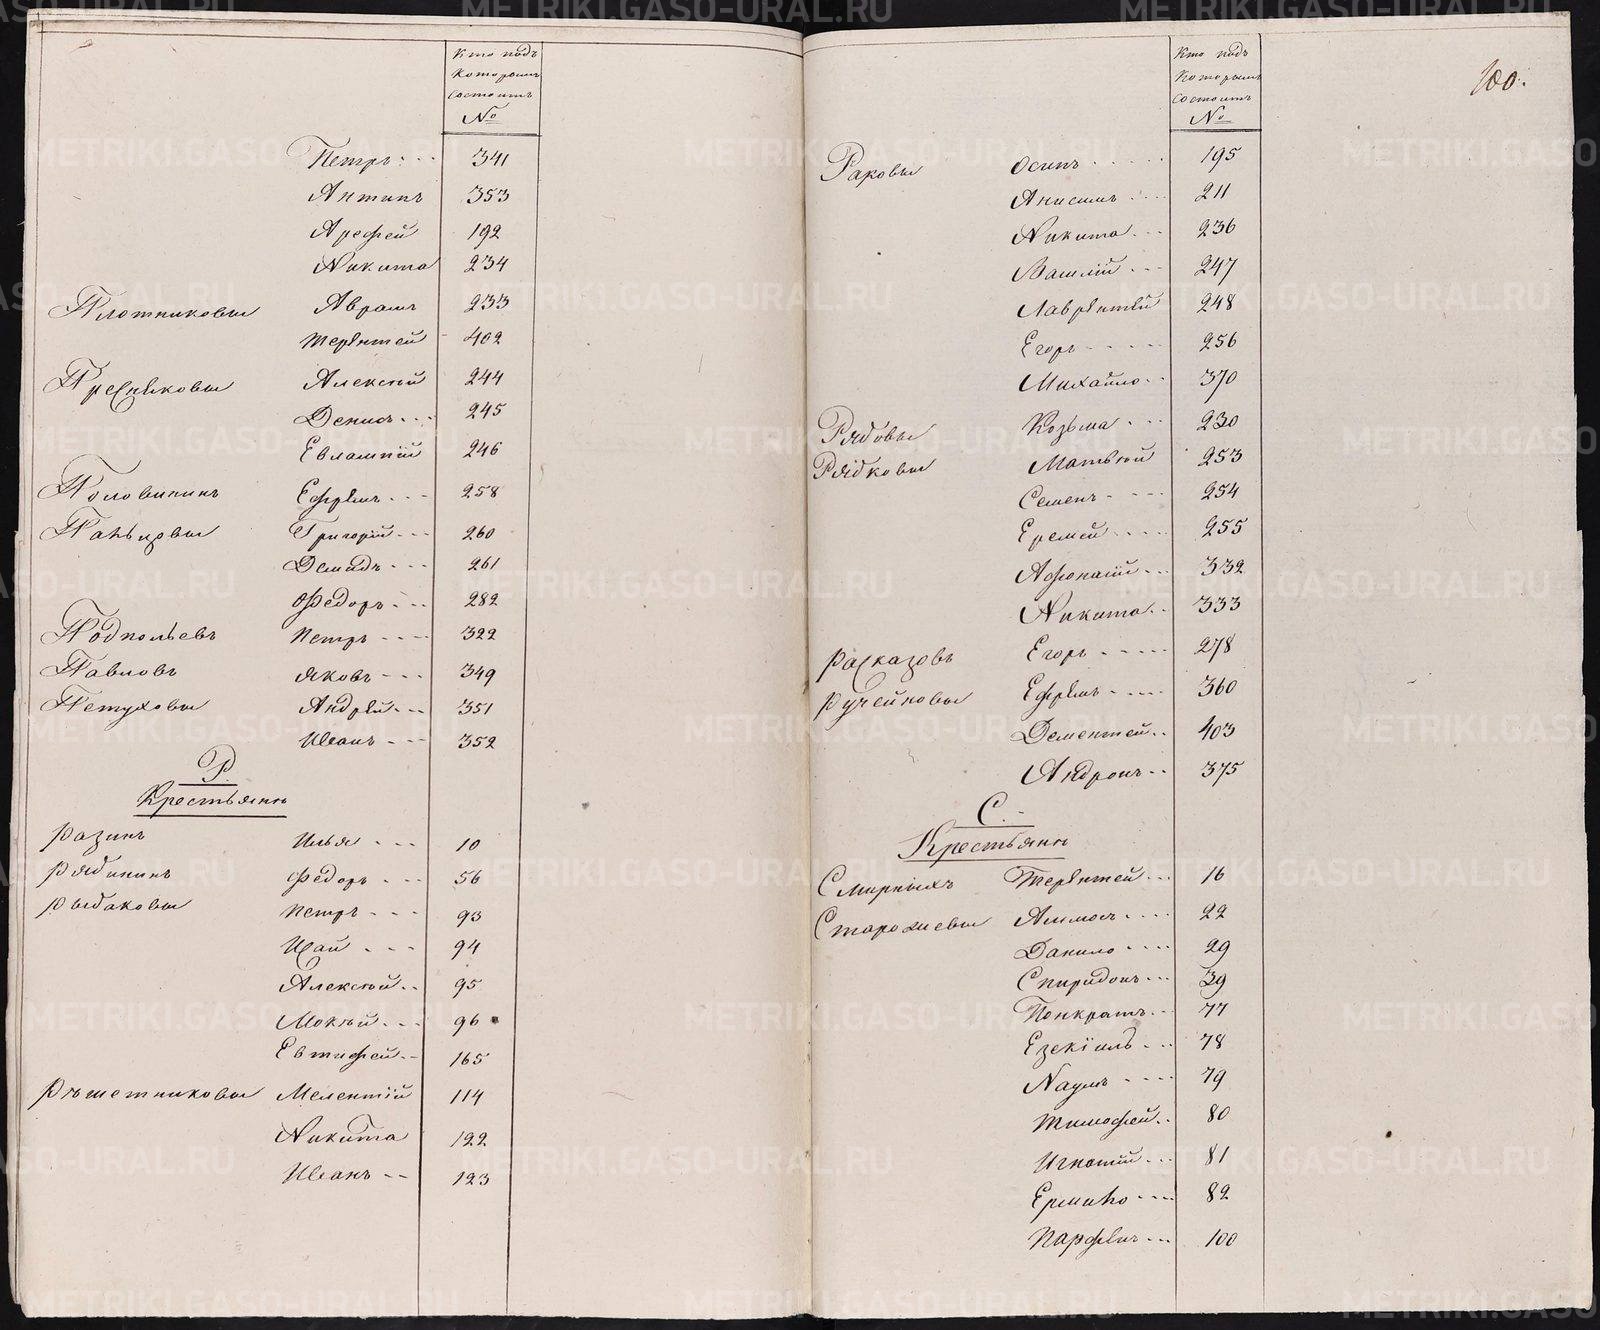 Кто подъ
которымъ
состоитъ
№
Петръ 341
Антипъ 353
Арефей 192
Никита 234
Плотниковы Аврамъ 233
Терентей 402
Пресняковы Алексей 244
Денисъ 245
Евлампий 246
Половинкинъ Ефремъ 258
Григорій 260
Демидъ 261
Федоръ 282
Подкольевъ Петръ 322
Павловъ Яковъ 349
Петуховы Андрей 351
Иванъ 352
Р.
Крестьяне
Разинъ Илья 10
Рябининъ Федоръ 56
Рыбаковы Петръ 93
Исай 94
Алексей 95
Мокей 96
Евтифей 165
Решетниковы Мелентій 114
Никита 122
Иванъ 123
100.
Кто подъ
которымъ
состоитъ
№
Раковы Осипъ 195
Анисимъ 211
Никита 236
Василій 247
Лаврентей 248
Егоръ 256
Михайло 370
Рябовы Козьма 230
Рябковы Матвей 253
Семенъ 254
Еремей 255
Афонасій 332
Никита 333
Расказовъ Егоръ 278
Ручейковы Ефремъ 360
Дементей 403
Андронъ 375
С.
Крестьяне
Смирныхъ Терентей 16
22
Данило 29
Спиридонъ 39
Понкратъ 77
Езекіиль 78
Наумъ 79
Тимофей 80
Игнатій 81
82
Парфенъ 100
METRIKI.GASO-URAL.RU